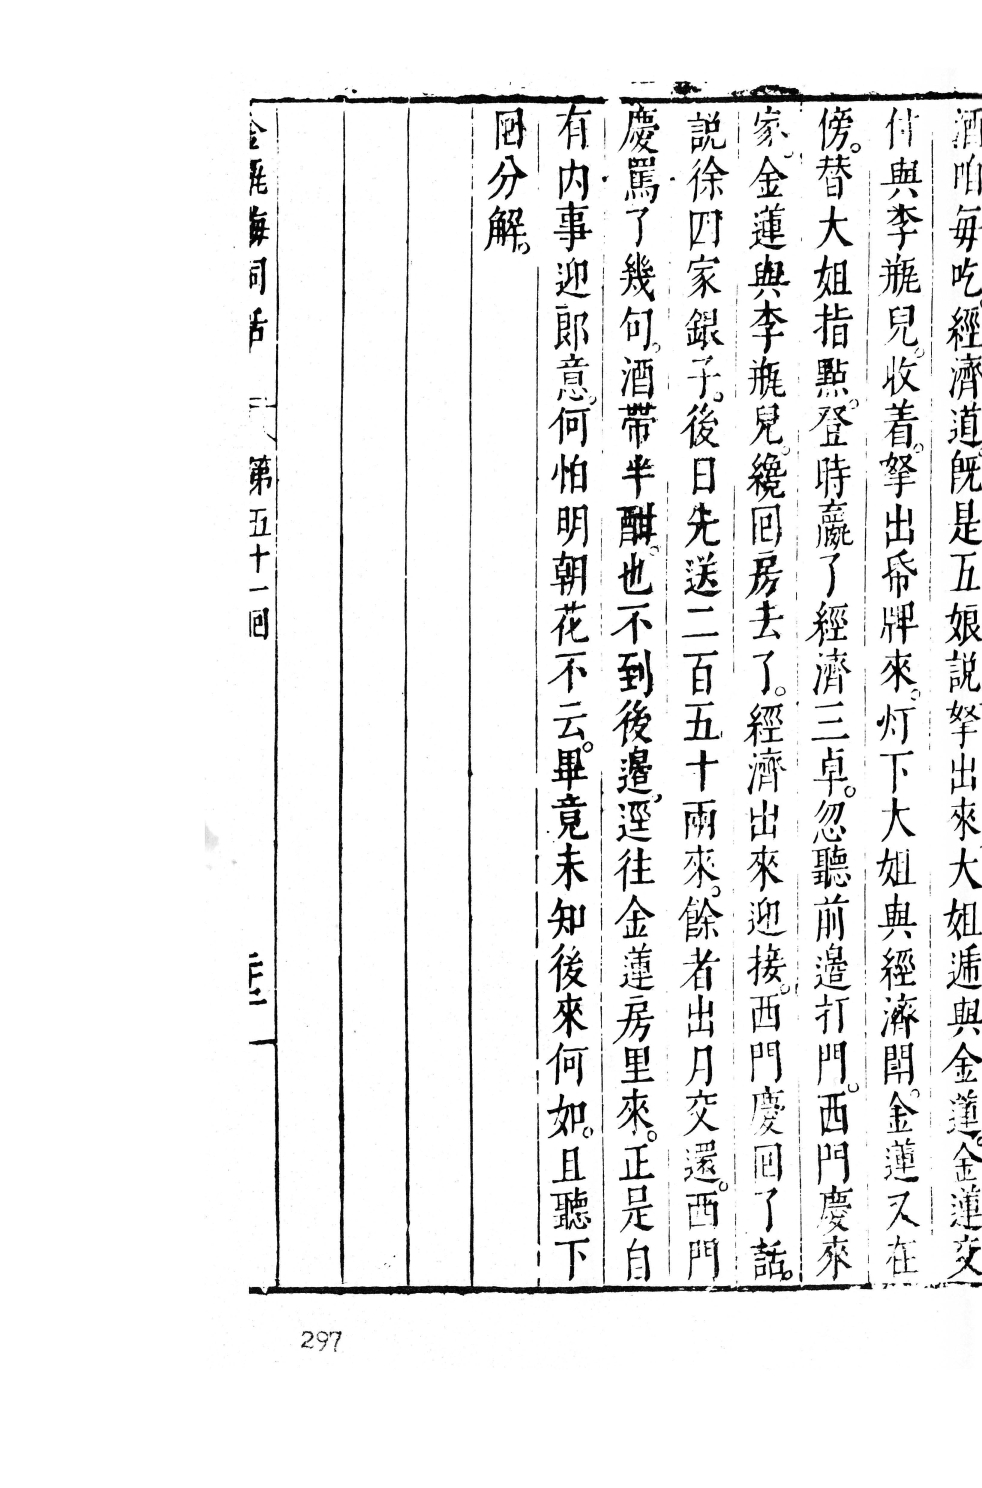 酒咱每吃經濟道旣是五娘說拏出來大姐遞與金蓮。金蓮交
付與李瓶兒。收着。拏出帋牌來。灯下大姐與經濟鬪。金蓮又在
傍。替大姐指點。登時贏了經濟三卓。忽聽前邉打門。西門慶來
家。金蓮與李瓶兒。纔回房去了。經濟出來迎接。西門慶囘了話。
說徐四家銀子。後日先送二百五十兩來。餘者出月交還。西門
慶罵了幾句。酒帶半酣。也不到後邉。逕往金蓮房里來。正是自
有内事迎郎意。何怕明朝花不云。畢竟未知後來何如。且聽下
囘分解。
金瓶梅詞話 第五十一囘
297